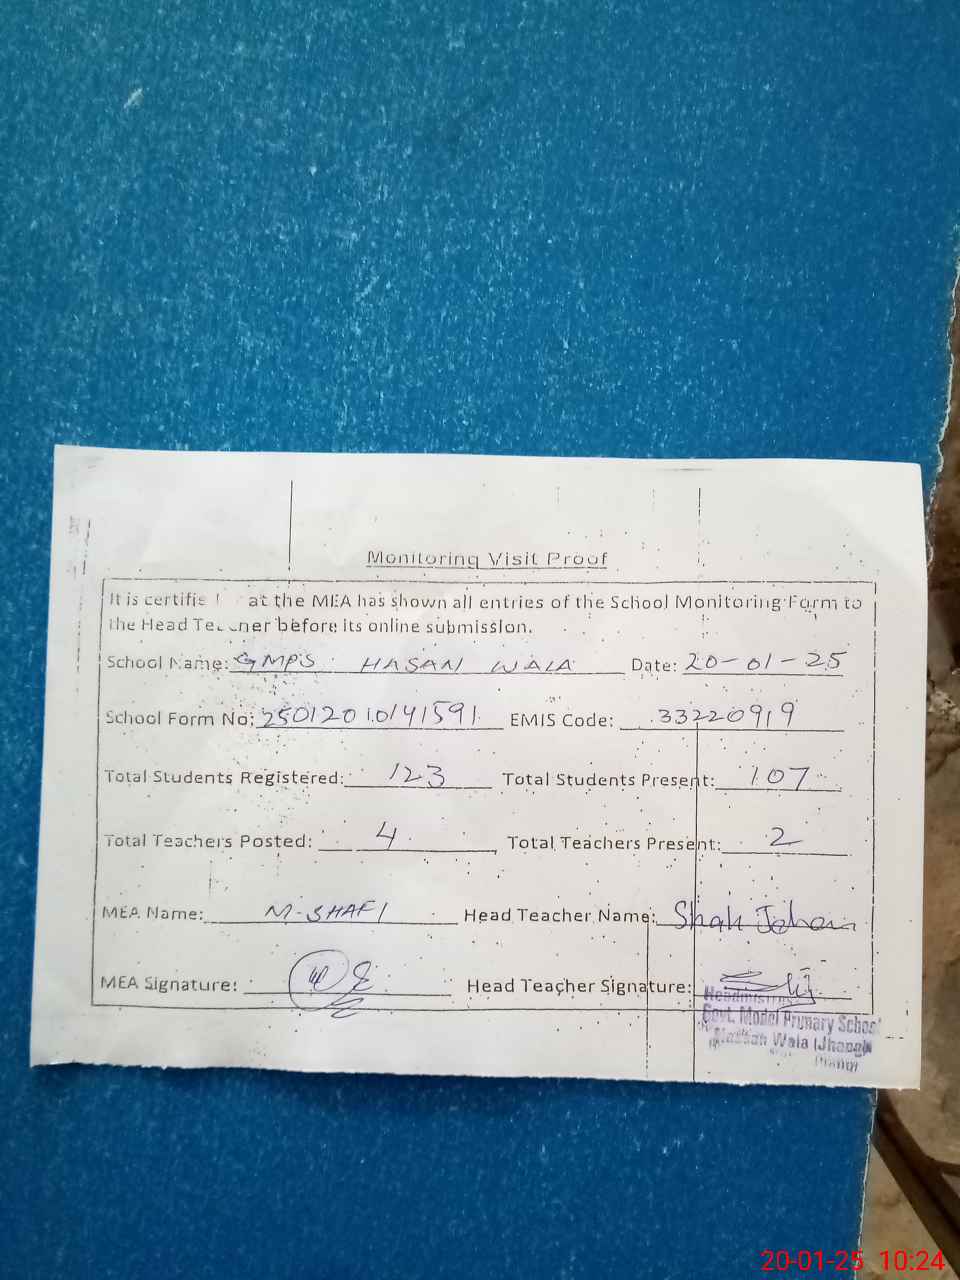 Monitoring Visit Proof
It is certifie at the MEA has shown all entries of the School Monitoring Form to
the Head Teacher before its online submission.
School Name: GMPS HASAN WALA Date: 20-01-25
School Form No: 25012010141591 EMIS Code: 33220919
Total Students Registered: 123 Total Students Present: 107
Total Teachers Posted: 4 Total Teachers Present: 2
MEA Name: M. SHAFI Head Teacher Name: Shah Jehan
MEA Signature: Head Teacher Signature:
Headmistress
Govt. Model Primary School
Hassan Wala (Jhang)
20-01-25 10:24